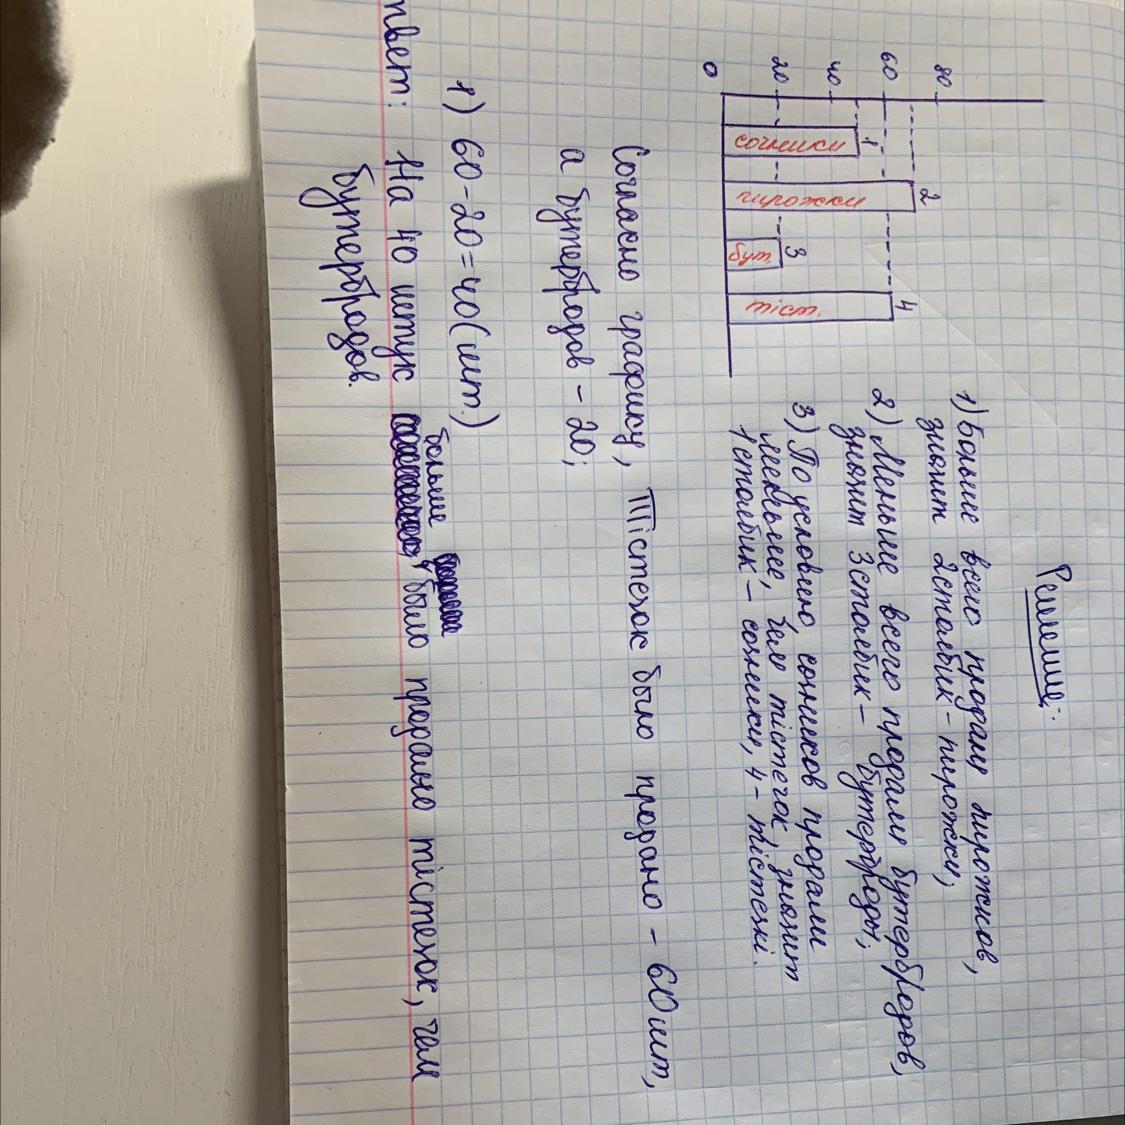 Решение:
80
60
40
20
0
1
2
3
4
сочники
пирожки
бут.
тіст.
1) Больше всего продали пирожков,
значит 2 столбик - пирожки,
2) Меньше всего продали бутербродов,
значит 3 столбик - бутерброды,
3) По условию, сочников продали
меньше, чем тістечок, значит
1 столбик - сочники, 4 - тістечкі.
Согласно графику, тістечок было продано - 60 шт,
а бутербродов - 20;
1) 60-20=40(шт.)
твет: На 40 штук больше было продано тістечок, чем
бутербродов.